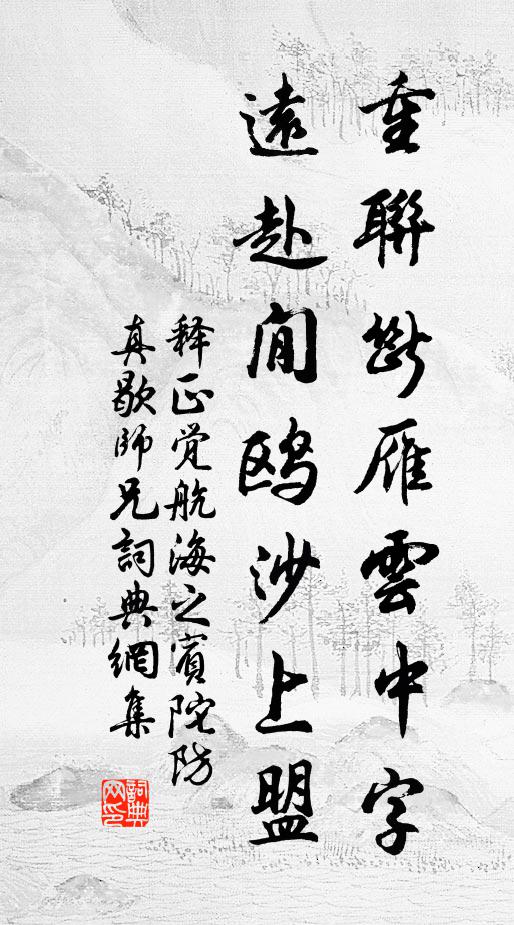 重聯斷雁雲中字
遠赴閒鷗沙上盟
释正觉航海之賓陀防
真歇師兄詞典網集
詞典
网印